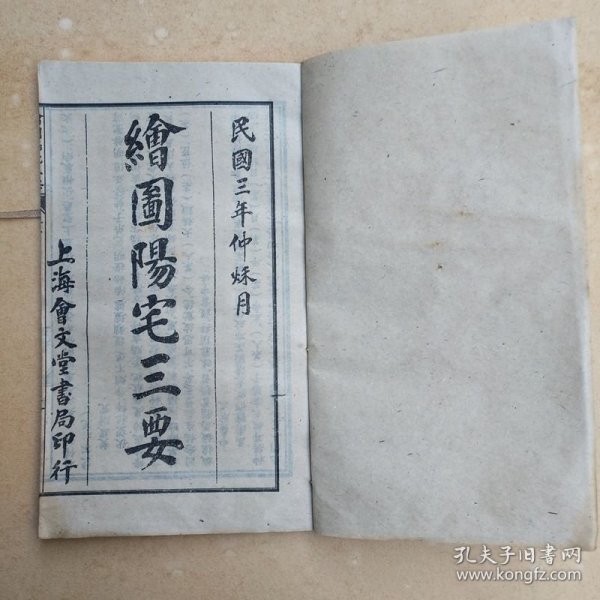 民國三年仲秌月
繪圖陽宅三要
上海會文堂書局印行
孔夫子旧书网
www.kongfz.com